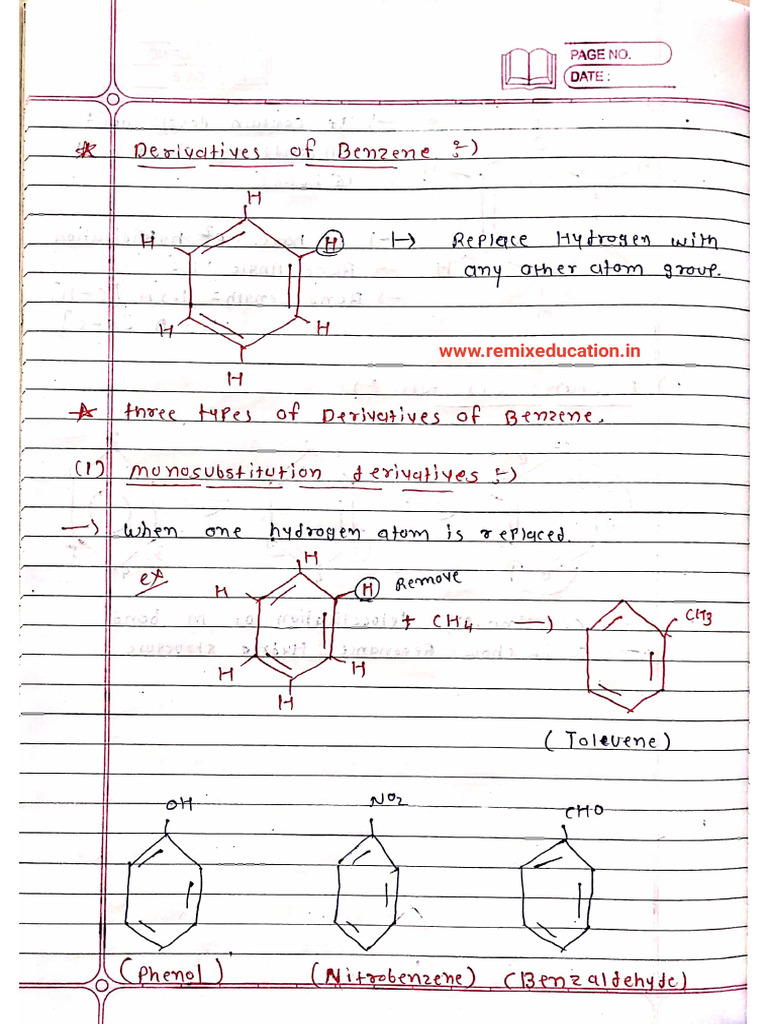 PAGE NO.
DATE :
* Derivatives of Benzene :-)
H
H
H
H
H
H
|-> Replace Hydrogen with
any other atom group.
www.remixeducation.in
* three types of Derivatives of Benzene.
(1) monosubstitution derivatives :-)
—) When one hydrogen atom is replaced.
ex
H
H
H Remove
+ CH4 —)
CH3
H
H
H
(Tolevene)
OH
NO2
CHO
(Phenol)
(Nitrobenzene)
(Benzaldehyde)